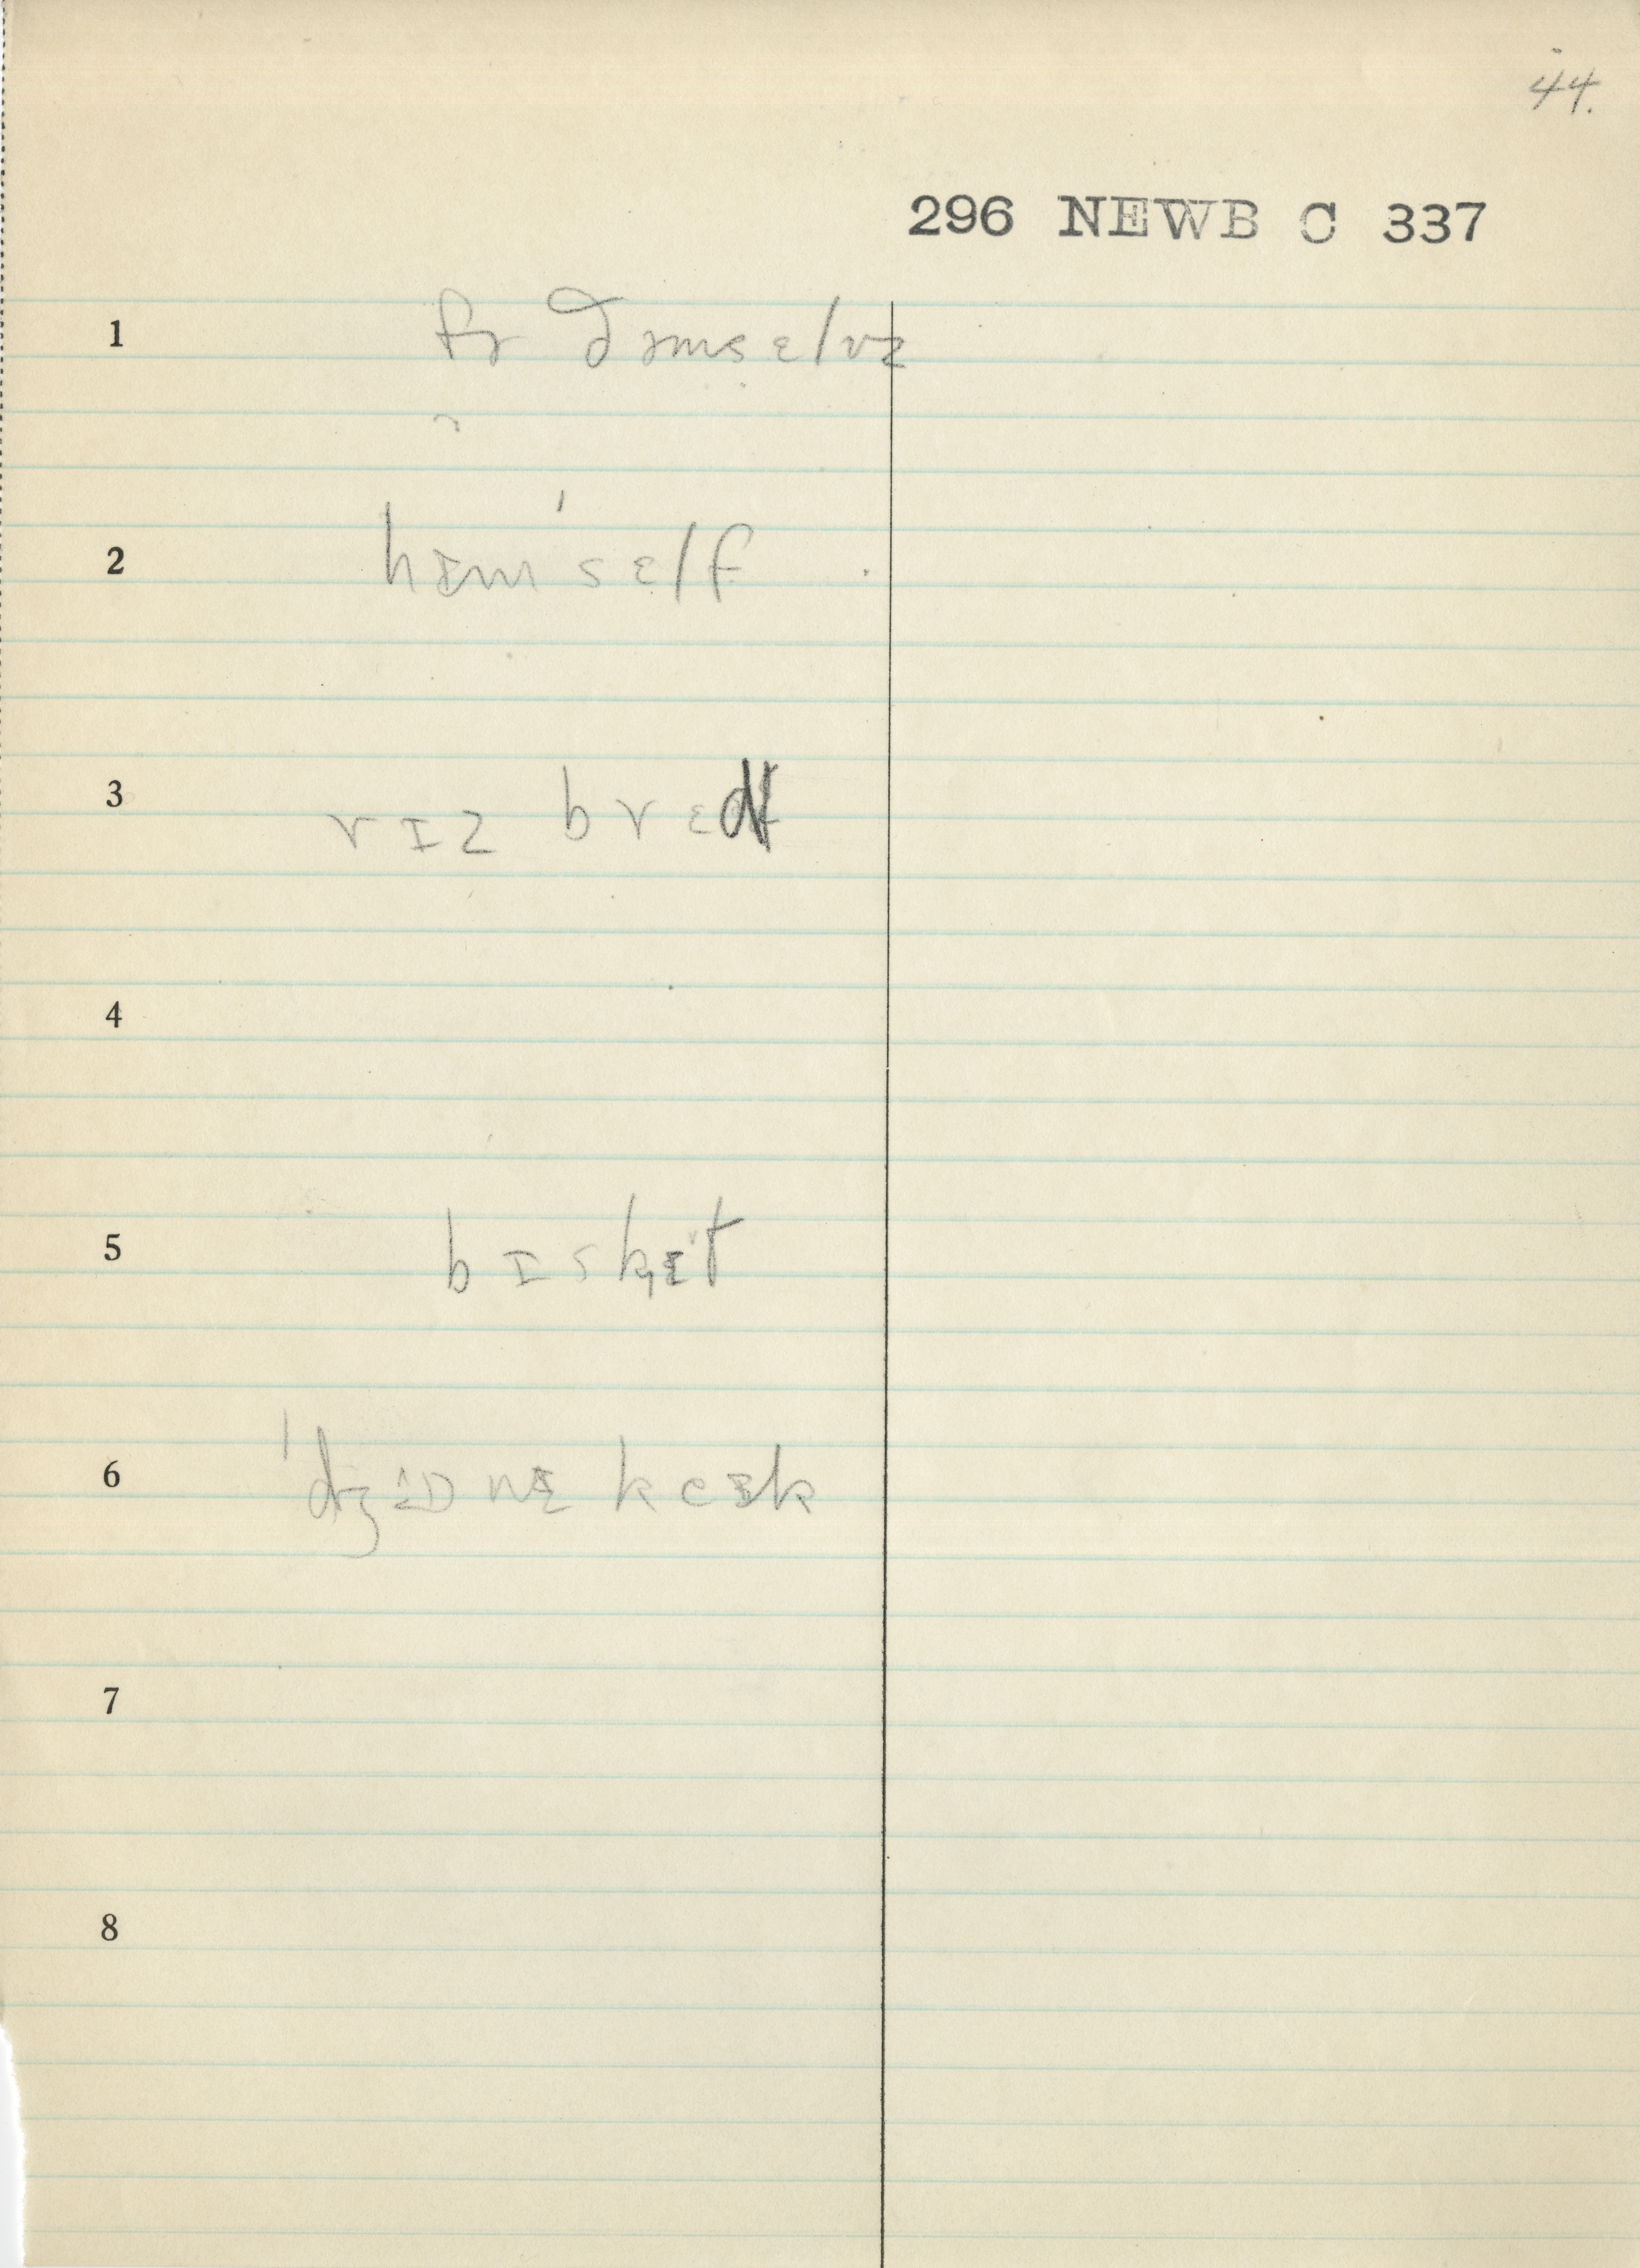 44.
296 NEWB C 337
1 fɚ ðəmsɛlvz
2 hɪm'sɛlf
3 rɪz brɛd
4
5 bɪskɪt
6
7
8